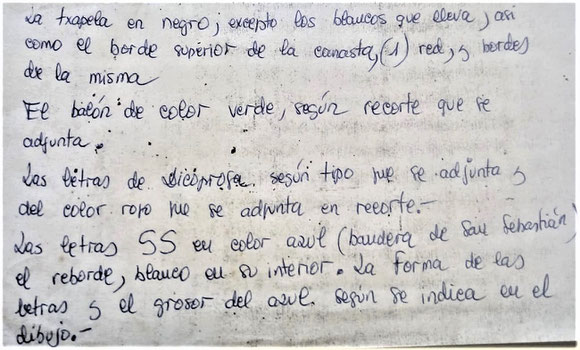 La txapela en negro, excepto los blancos que lleva, asi
como el borde superior de la canasta, (1) red, y bordes
de la misma
El balón de color verde, según recorte que se
adjunta.
Las letras de Dicoprosa según tipo que se adjunta y
del color rojo que se adjunta en recorte.-
Las letras SS en color azul (bandera de San Sebastián)
el reborde, blanco en su interior. La forma de las
letras y el grosor del azul según se indica en el
dibujo.-